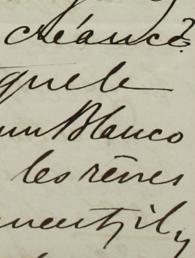 créance?
quele
un Blanco
les rênes
ment, il y